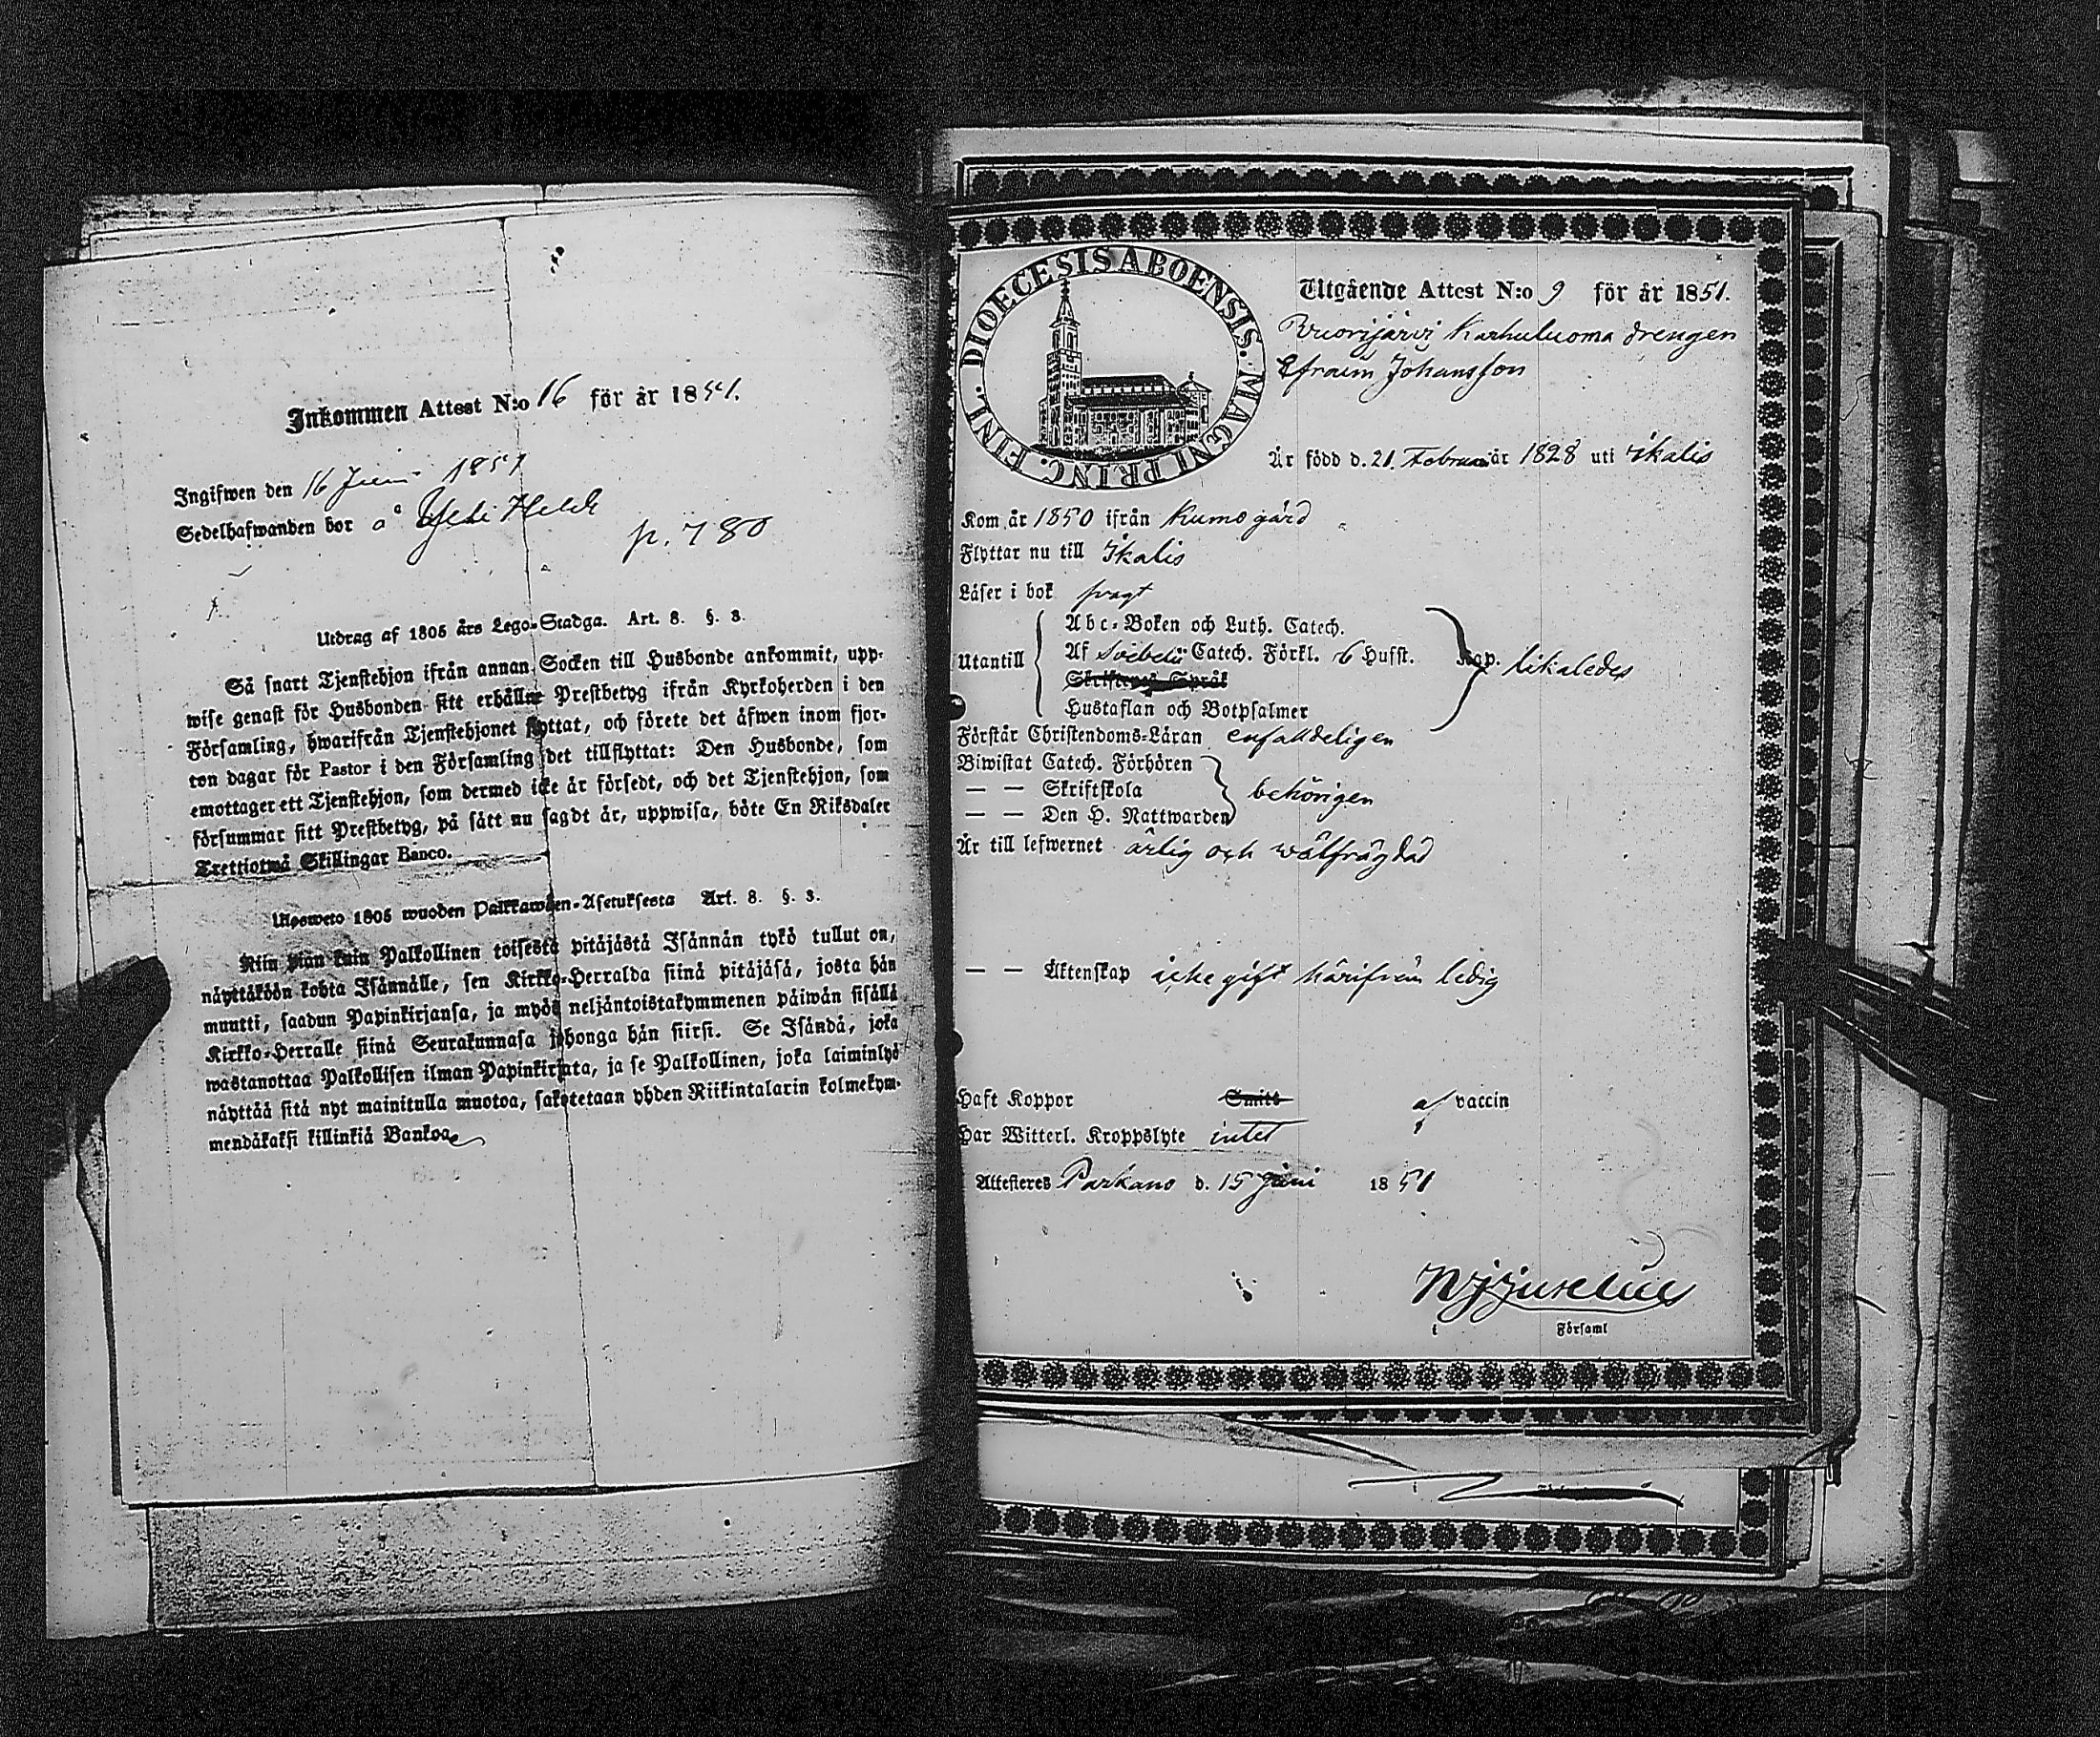 Inkommen Attest N:o 16 för år 1851.
Ingifwen den 16 Juni 1851
Sedelhafwanden bor å
p. 780
Utdrag af 1805 års Lego-Stadga. Art. 8. §. 3.
Så snart Tjenstehjon ifrån annan Socken till Husbonde ankommit, upp-
wise genast för Husbonden sitt erhållne Prestbetyg ifrån Kyrkoherden i den
Församling, hwarifrån Tjenstehjonet flyttat, och förete det äfwen inom fjor-
ton dagar för Pastor i den Församling det tillflyttat: Den Husbonde, som
emottager ett Tjenstehjon, som dermed icke är försedt, och det Tjenstehjon, som
försummar sitt Prestbetyg, på sätt nu sagdt är, uppwisa, böte En Riksdaler
Trettiotwå Skillingar Banco.
Ulosweto 1805 wuoden Palkkawäen-Asetuksesta Art. 8. §. 3.
Niin pian kuin Palkollinen toisesta pitäjästä Isännän tykö tullut on,
näyttäköön kohta Isännälle, sen Kirkko-Herralda siinä pitäjäsä, josta hän
muutti, saadun Papinkirjansa, ja myös neljäntoistakymmenen päiwän sisällä
Kirkko-Herralle siinä Seurakunnasa johonga hän siirsi. Se Isändä, joka
wastanottaa Palkollisen ilman Papinkirjata, ja se Palkollinen, joka laiminlyö
näyttää sitä nyt mainitulla muotoa, sakotetaan yhden Riikintalarin kolmekym-
mendäkaksi killinkiä Bankoa.
DIOECESIS ABOENSIS. MAGNI PRINC. FINL.
Utgående Attest N:o 9 för år 1851.
Vuorijärvi Karhuluoma drengen
Efraim Johansson
Är född d. 21 Februari år 1828 uti Ikalis
Kom år 1850 ifrån Kumo gård
Flyttar nu till Ikalis
Läser i bok swagt
Abc-Boken och Luth. Catech.
Utantill Af Svebelii Catech. Förkl. 6 Hufst. Kap. likaledes
Skriftenes Språk
Hustaflan och Botpsalmer
Förstår Christendoms-Läran enfalldeligen
Biwistat Catech. Förhören
— — Skriftskola behörigen
— — Den H. Nattwarden
Är till lefwernet ärlig och wälfrägdad
— — Äktenskap icke gift härifrån ledig
Haft Koppor Smitt af vaccin
Har Witterl. Kroppslyte intet
Attesteras Parkano d. 15 Juni 1851
i Församl